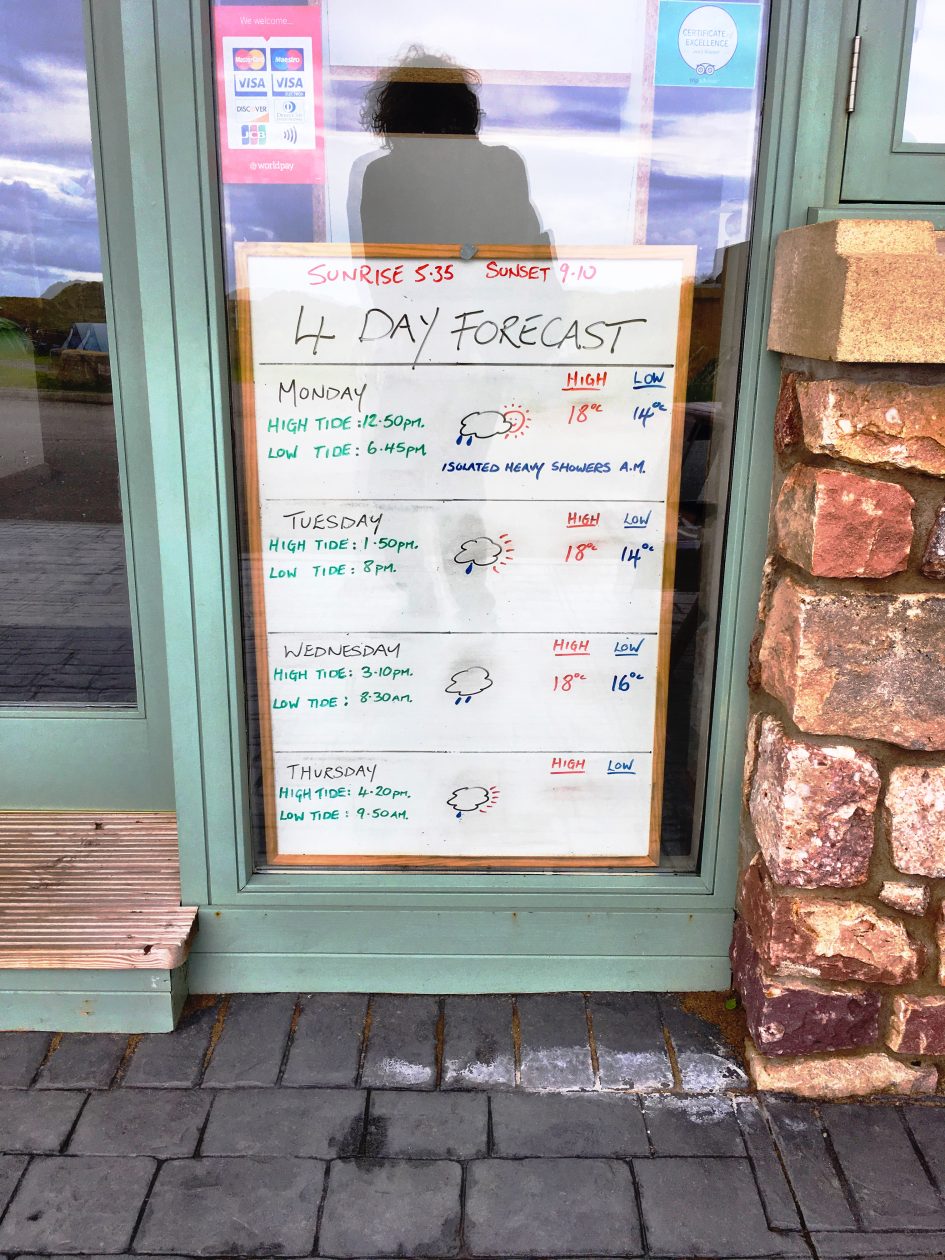 We welcome...
MasterCard Maestro
VISA VISA
DISCOVER
JCB
worldpay
CERTIFICATE of
EXCELLENCE
SUNRISE 5.35 SUNSET 9.10
4 DAY FORECAST
MONDAY HIGH LOW
HIGH TIDE : 12.50PM. 18°C 14°C
LOW TIDE : 6.45PM
ISOLATED HEAVY SHOWERS A.M.
TUESDAY HIGH LOW
HIGH TIDE : 1.50PM. 18°C 14°C
LOW TIDE : 8PM.
WEDNESDAY HIGH LOW
HIGH TIDE : 3.10PM. 18°C 16°C
LOW TIDE : 8.30AM.
THURSDAY HIGH LOW
HIGH TIDE : 4.20PM.
LOW TIDE : 9.50AM.